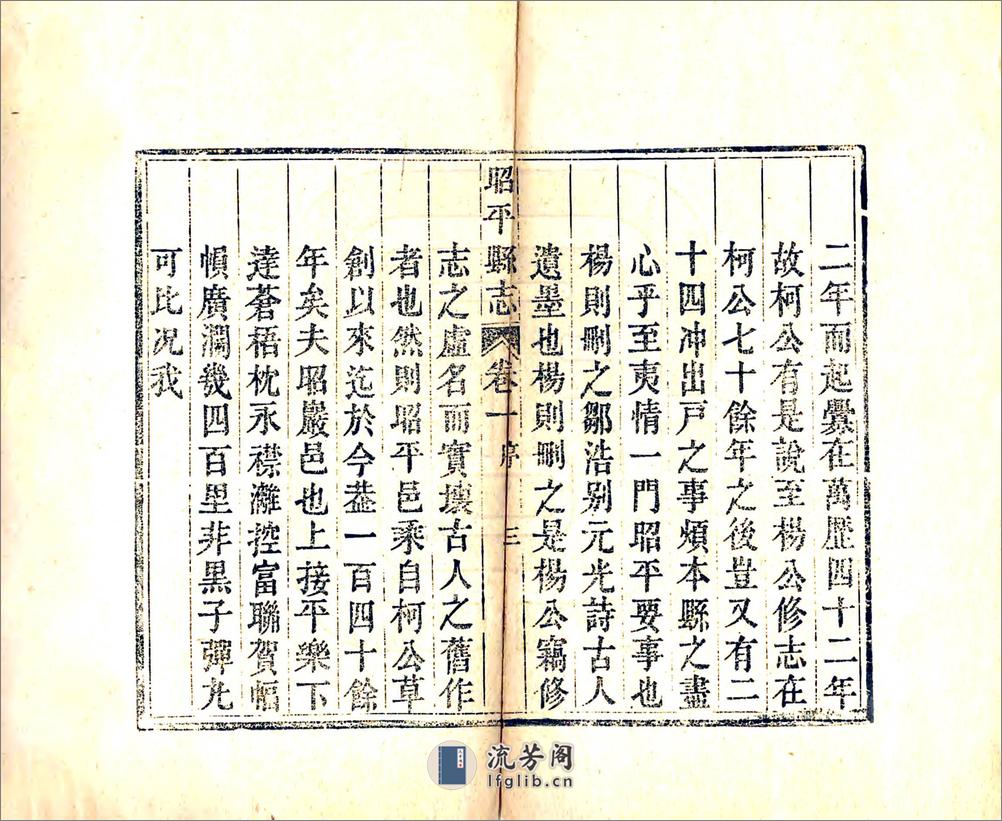 二年而起釁在萬歷四十二年
故柯公有是說至楊公修志在
柯公七十餘年之後豈又有二
十四冲出戸之事煩本縣之盡
心乎至夷情一門昭平要事也
楊則刪之鄒浩别元光詩古人
遺墨也楊則刪之是楊公竊修
昭平縣志 卷一 序 三
志之虛名而實壞古人之舊作
者也然則昭平邑乘自柯公草
創以來迄於今葢一百四十餘
年矣夫昭巖邑也上接平樂下
逹蒼梧枕永襟灕控富聯賀幅
幀廣濶幾四百里非黒子彈丸
可比况我
流芳阁
lfglib.cn